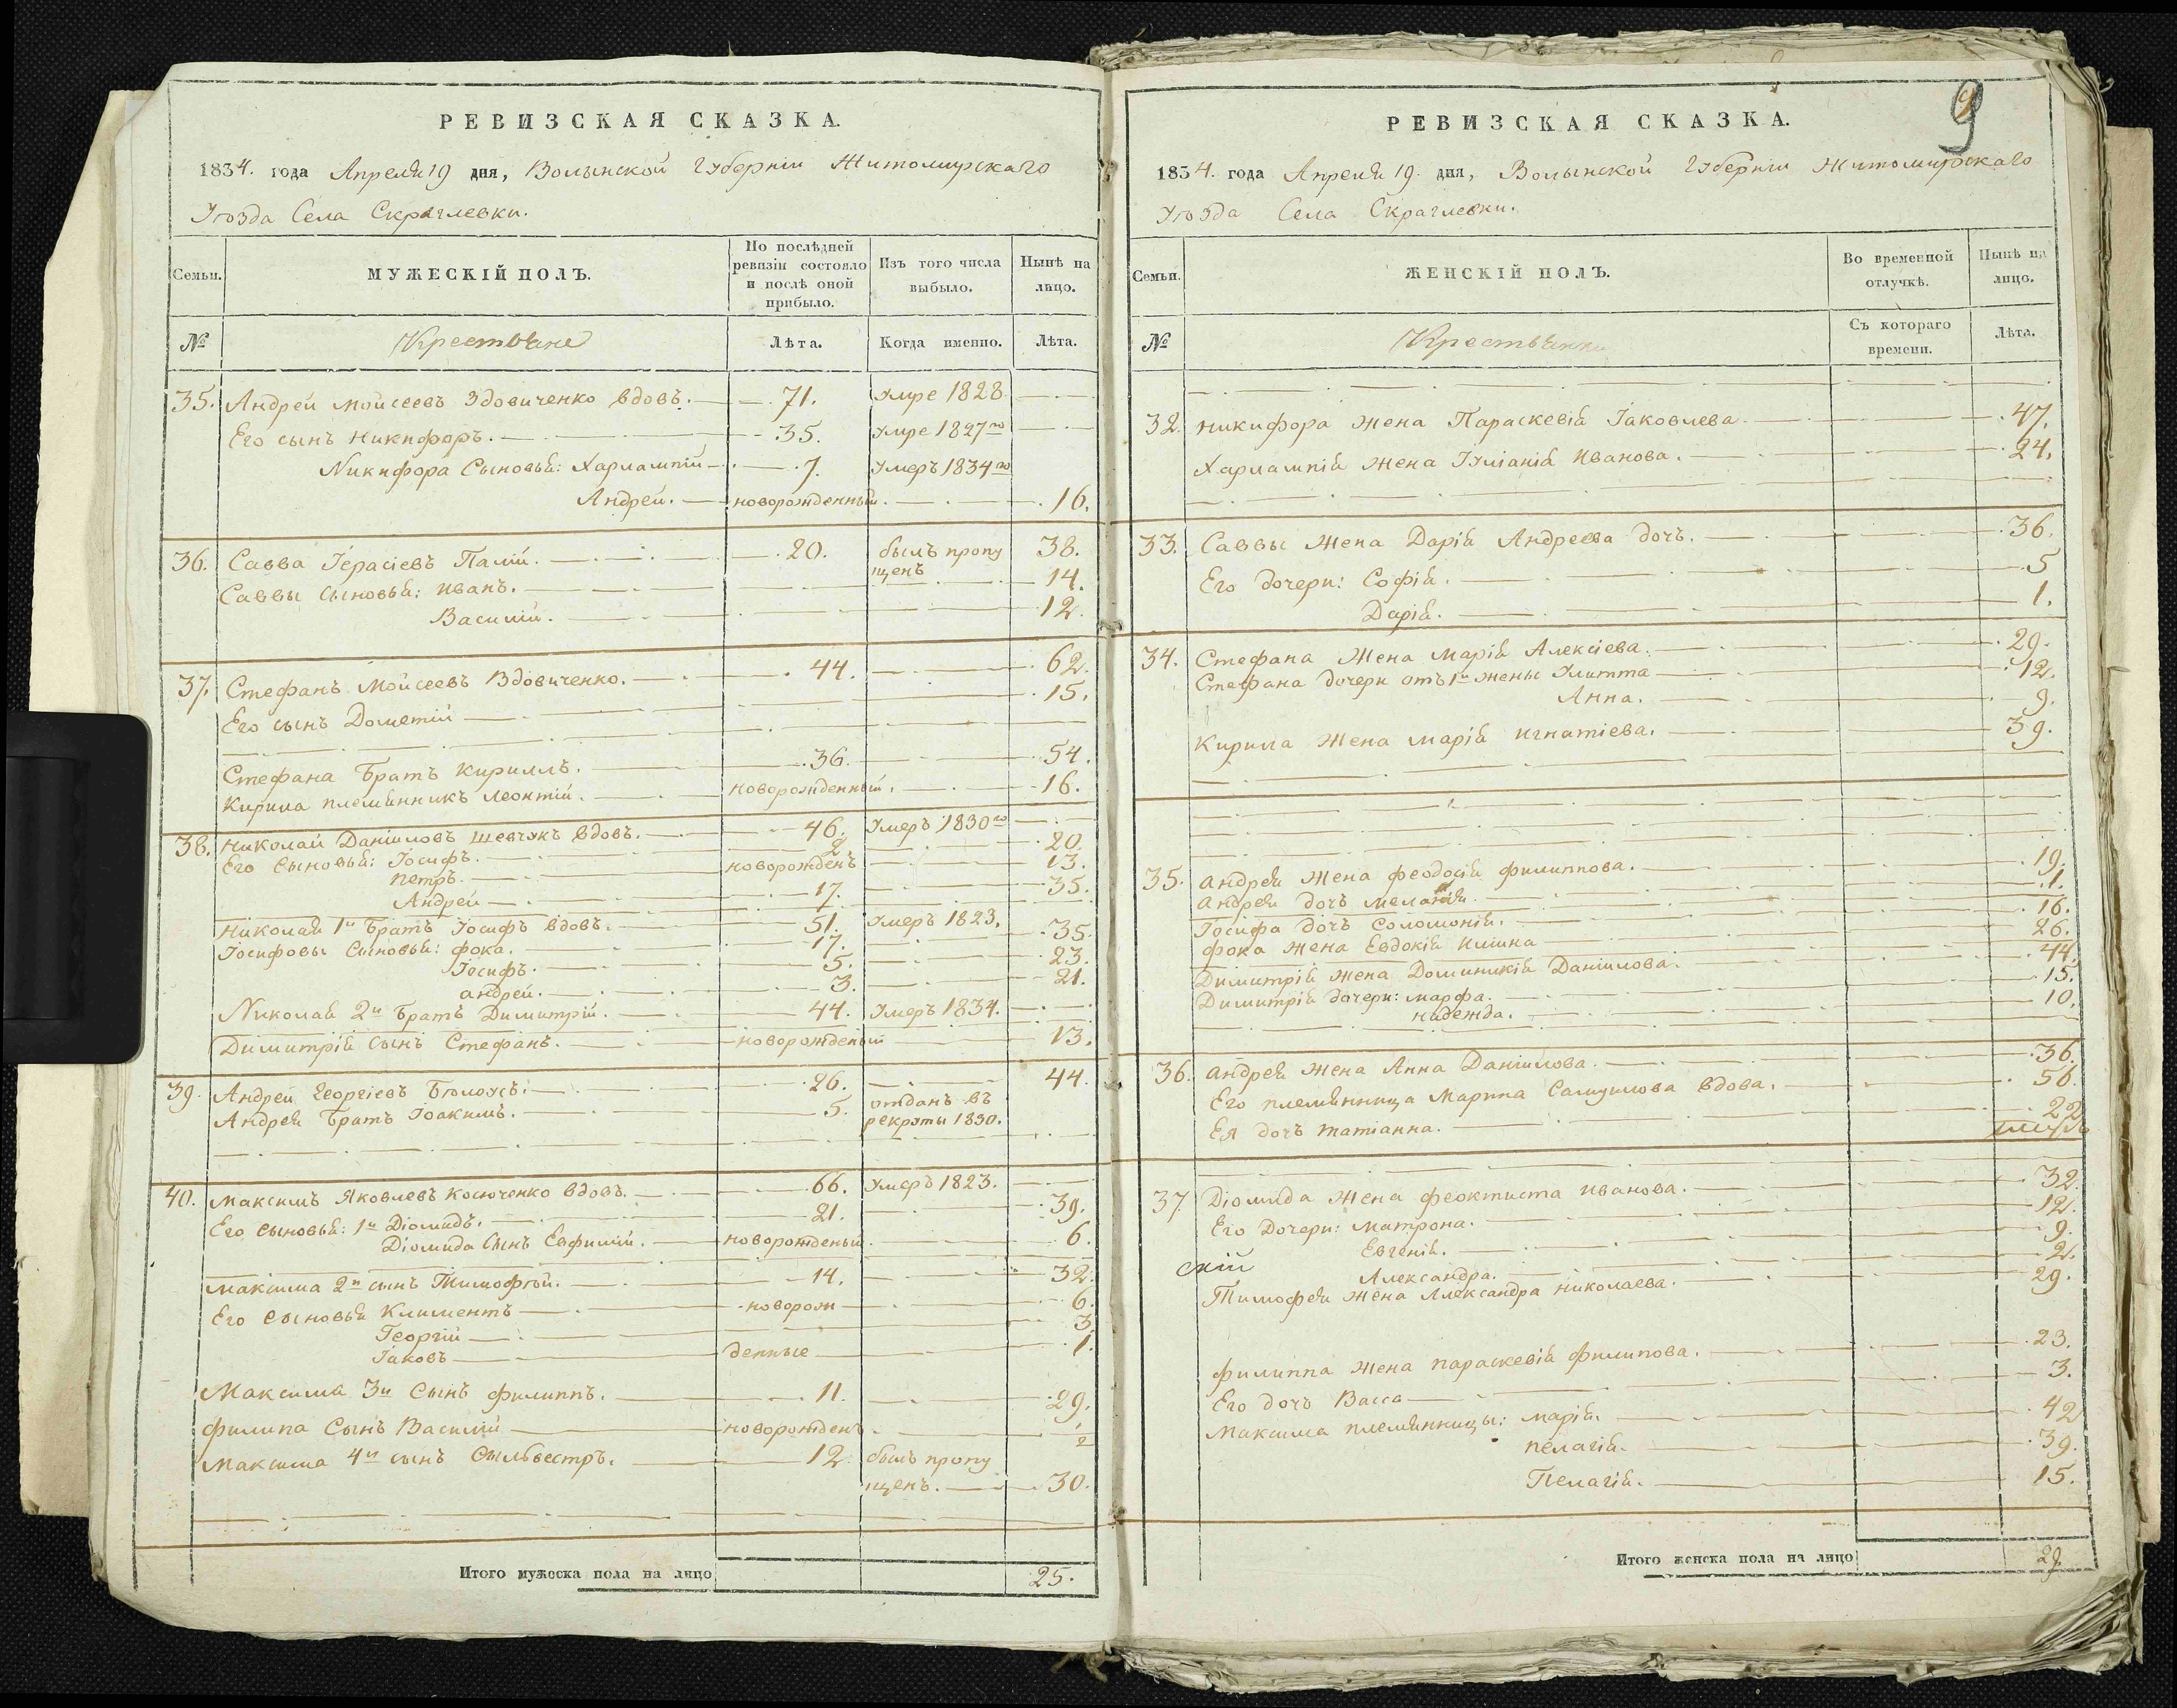 РЕВИЗСКАЯ СКАЗКА.
1834. года Апреля 19 дня, Волынской Губернiи Житомирскаго
Уѣзда Села Скраглевки.
Семьи. МУЖЕСКIЙ ПОЛЪ. По послѣдней ревизiи состояло и послѣ оной прибыло. Изъ того числа выбыло. Нынѣ на лицо.
№ Крестьяне Лѣта. Когда именно. Лѣта.
35. Андрей Моисеевъ Здовиченко вдовъ. 71. Умре 1828
Его сынъ Никифоръ. 35. Умре 1827го
Никифора Сыновья: Харлампiй 7. Умеръ 1834го
Андрей. новорожденный. 16.
36. Савва Герасiевъ Палiй. 20. былъ пропу 38.
щенъ
Саввы сыновья: Иванъ. 14.
Василiй. 12.
37. Стефанъ Моисеевъ Вдовиченко. 44. 62.
Его сынъ Дометiй 15.
Стефана Братъ Кириллъ. 36. 54.
Кирила племянникъ Леонтiй. новорожденный. 16.
38. Николай Данiиловъ Шевчукъ вдовъ. 46. Умеръ 1830го
Его Сыновья: Iосифъ. 2 20.
Петръ. новорожденъ 13.
Андрей 17. 35.
Николая 1й Братъ Iосифъ вдовъ. 51. Умеръ 1823.
Iосифовы Сыновья: Фока. 17. 35.
Iосифъ. 5. 23.
Андрей. 3. 21.
Николая 2й Братъ Димитрiй. 44. Умеръ 1834.
Димитрiя Сынъ Стефанъ. новорожденый 13.
39. Андрей Георгiевъ 26. 44.
Андрея Братъ Iоакимъ. 5. отданъ въ
рекруты 1830.
40. Максимъ Яковлевъ Косюченко вдовъ. 66. Умеръ 1823.
Его сыновья: 1й Дiомидъ. 21. 39.
Дiомида Сынъ Евфимiй. новорожденый. 6.
Максима 2й сынъ Тимофѣй. 14. 32.
Его сыновья Климентъ новорож 6.
Георгiй 3.
Iаковъ денные 1.
Максима 3й Сынъ Филиппъ. 11. 29.
Филипа Сынъ Василiй новорожденъ. 1/2
Максима 4й сынъ Сильвестръ. 12. былъ пропу
щенъ. 30.
Итого мужеска пола на лицо 25.
9
РЕВИЗСКАЯ СКАЗКА.
1834. года Апреля 19. дня, Волынской Губернiи Житомирскаго
Уѣзда Села Скраглевки.
Семьи. ЖЕНСКIЙ ПОЛЪ. Во временной отлучкѣ. Нынѣ на лицо.
№ Крестьянки Съ котораго времени. Лѣта.
32. Никифора жена Параскевiя Iаковлева. 47.
Харлампiя жена Iулiанiя Иванова. 24.
33. Саввы жена Дарiя Андреева дочь. 36.
Его дочери: Софiя. 5
Дарiя. 1.
34. Стефана жена Марiя Алексiева. 29.
Стефана дочери отъ 1й жены Улитта 12.
Анна. 9.
Кирила жена Марiя Игнатiева. 39.
35. Андрея жена Феодосiя Филиппова. 19.
Андрея дочь Меланiя. 1.
Iосифа дочь Соломонiя. 16.
Фока жена Евдокiя 26.
Димитрiя жена Доминикiя Данiилова. 44.
Димитрiя дочери: Марфа. 15.
Надежда. 10.
36. Андрея жена Анна Данiилова. 36.
Его племянница Марина Самуилова вдова. 56.
Ея дочь Татiанна. 22
37. Дiомида жена Феоктиста Иванова. 32.
Его дочери: Матрона. 12.
Евгенiя. 9.
скiй
Александра. 2.
Тимофея жена Александра Николаева. 29.
Филиппа жена Параскевiя Филипова. 23.
Его дочь Васса 3.
Максима племянницы: Марiя. 42
Пелагiя. 39.
Пелагiя. 15.
Итого женска пола на лицо 29.